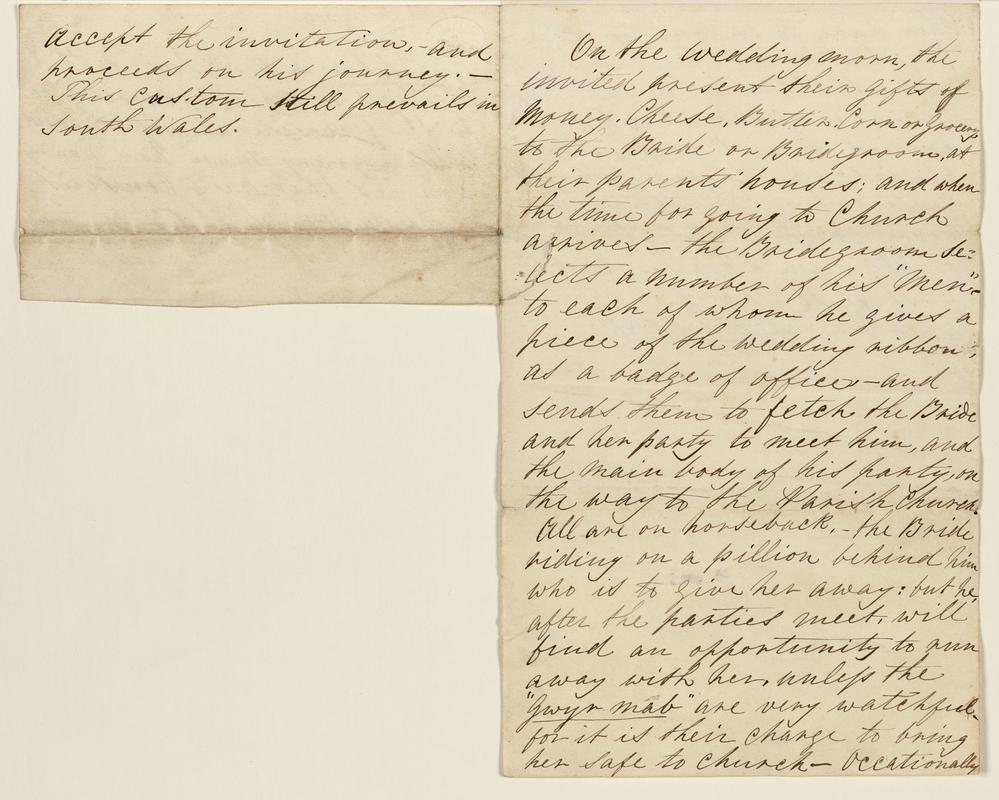 accept the invitation, - and
proceeds on his journey. —
This custom still prevails in
South Wales.
On the wedding morn, the
invited present their gifts of
Money. Cheese. Butter. Corn or Grocery
to the Bride or Bridegroom, at
their parents' houses; and when
the time for going to Church
arrives — the Bridegroom se=
lects a number of his "Men" -
to each of whom he gives a
piece of the wedding ribbon,
as a badge of office — and
sends them to fetch the Bride
and her party to meet him, and
the main body of his party, on
the way to the Parish Church.
All are on horseback, - the Bride
riding on a pillion behind him
who is to give her away: but he,
after the parties meet, will
find an opportunity to run
away with her, unless the
"Gwyr mab" are very watchful -
for it is their charge to bring
her safe to Church — Occationally